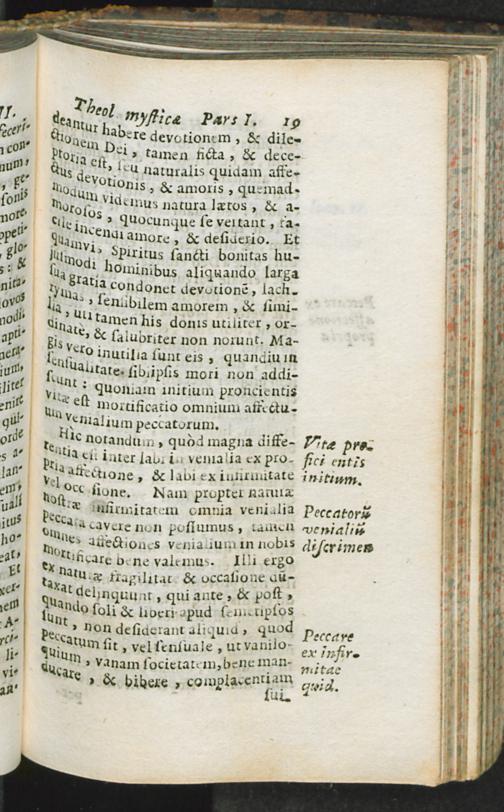 Theol mysticæ Pars I. 19
deantur habere devotionem, & dile-
ctionem Dei, tamen ficta, & dece-
ptoria est, seu naturalis quidam affe-
ctus devotionis, & amoris, quemad-
modum videmus natura lætos, & a-
morosos, quocunque se vertant, fa-
cile incendi amore, & desiderio. Et
quamvis Spiritus sancti bonitas hu-
jusmodi hominibus aliquando larga
sua gratia condonet devotionē, lach-
rymas, sensibilem amorem, & simi-
lia, uti tamen his donis utiliter, or-
dinatè, & salubriter non norunt. Ma-
gis vero inutilia sunt eis, quandiu in
sensualitate sibiipsis mori non addi-
scunt: quoniam initium proficientis
vitæ est mortificatio omnium affectu-
um venialium peccatorum.
Hic notandum, quòd magna diffe-
rentia est inter labi in venialia ex pro-
pria affectione, & labi ex infirmitate
vel occasione. Nam propter naturæ
nostræ infirmitatem omnia venialia
peccata cavere non possumus, tamen
omnes affectiones venialium in nobis
mortificare bene valemus. Illi ergo
ex naturæ fragilitate & occasione dū-
taxat delinquunt, qui ante, & post,
quando soli & liberi apud semetipsos
sunt, non desiderant aliquid, quod
peccatum sit, vel sensuale, ut vanilo-
quium, vanam societatem, bene man-
ducare, & bibere, complacentiam
sui
Vitæ pro-
fici entis
initium.
Peccatorū
venialiū
discrimen
Peccare
ex infir-
mitate
quid.